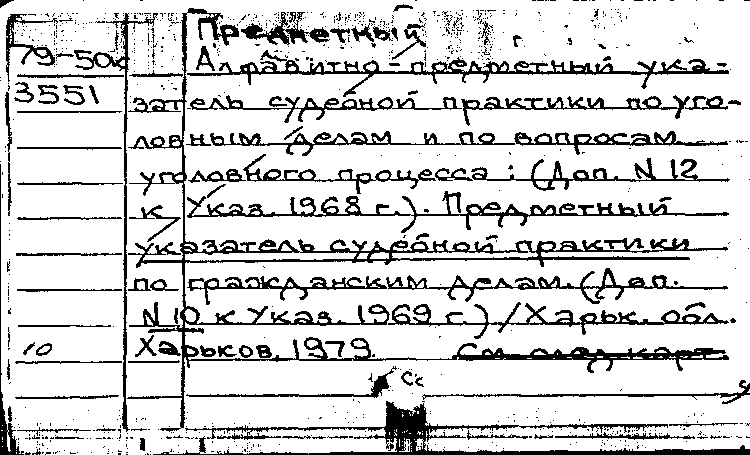 Предметный
79-50к Алфавитно-предметный ука-
3551 затель судебной практики по уго-
ловным делам и по вопросам
уголовного процесса: (Доп. N 12
к Указ. 1968 г.). Предметный
указатель судебной практики
по гражданским делам. (Доп.
N 10 к Указ. 1969 г.) / Харьк. обл.
10 Харьков, 1979. См. след. карт.
Сс